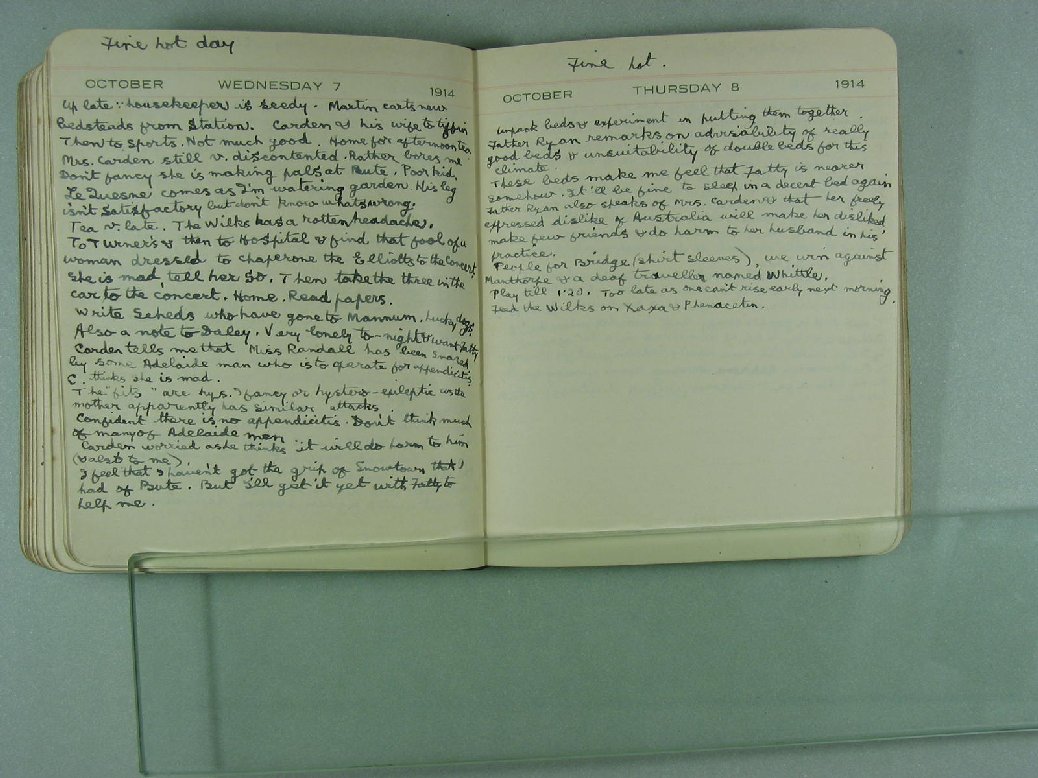 Fine hot day
OCTOBER WEDNESDAY 7 1914
Up late ∵ housekeeper is seedy. Martin carts new
bedsteads from Station. Carden & his wife to tiffin
Then to sports. Not much good. Home for afternoon tea.
Mrs. Carden still v. discontented. Rather bores me.
Don't fancy she is making pals at Bute. Poor kid.
Le Quesne comes as I'm watering garden. His leg
isn't satisfactory but don't know what's wrong.
Tea v. late. The Wilks has a rotten headache.
To Turner's & then to Hospital & find that fool of a
woman dressed to chaperone the Elliotts to the concert.
She is mad, tell her so. Then take the three in the
car to the concert. Home. Read papers.
Write Scheds who have gone to Mannum. Lucky dogs.
Also a note to Daley. Very lonely to-night & want Fatty
Carden tells me that Miss Randall has been snared
by some Adelaide man who is to operate for appendicitis
C. thinks she is mad.
The "fits" are hys. fancy or hystero-epileptic as the
mother apparently has similar attacks
Confident there is no appendicitis. Don't think much
of many of Adelaide men
Carden worried as he thinks it will do harm to him
(& also to me)
I feel that I haven't got the grip of Snowtown that I
had of Bute. But I'll get it yet with Fatty to
help me.
Fine hot.
OCTOBER THURSDAY 8 1914
Unpack beds & experiment in putting them together.
Father Ryan remarks on advisability of really
good beds & unsuitability of double beds for this
climate.
These beds make me feel that Fatty is nearer
somehow. It'll be fine to sleep in a decent bed again
Father Ryan also speaks of Mrs. Carden & that her freely
expressed dislike of Australia will make her disliked,
make few friends & do harm to her husband in his
practice.
People for Bridge (shirt sleeves), we win against
Manthorpe & a deaf traveller named Whittle.
Play till 1.20. Too late as one can't rise early next morning.
Feed the Wilks on Xaxa & Phenacetin.